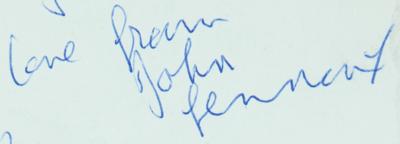 love from
John
Lennon X